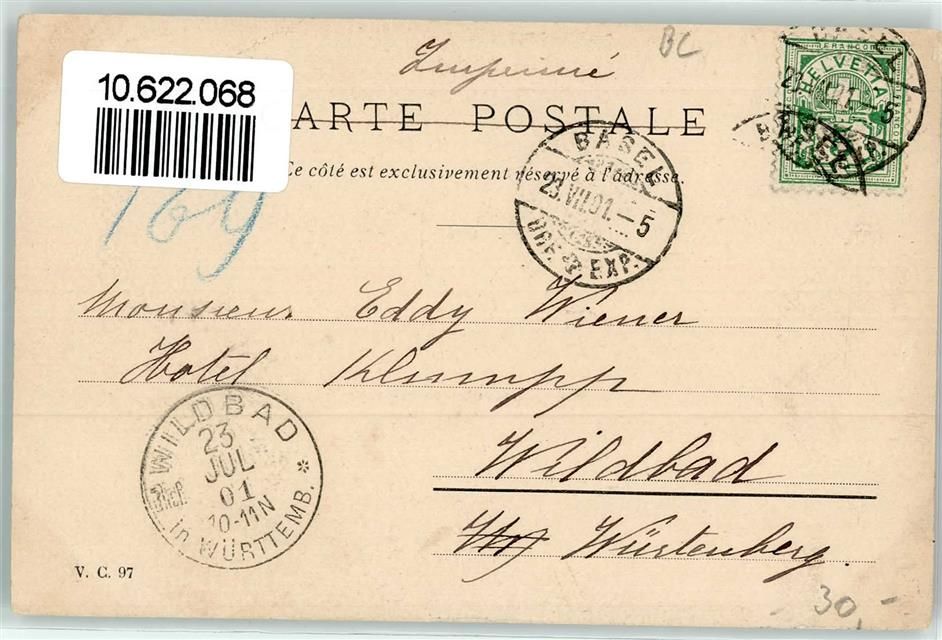 Imprimé
BC
10.622.068
ARTE POSTALE
Ce côté est exclusivement réservé à l'adresse.
FRANCO
HELVETIA
BASEL
BASEL
23.VII.01.–5
BRF. EXP.
169
Monsieur Eddy Wiener
Hotel Klumpp
Wildbad
Würtenberg.
WILDBAD
23
JUL
01
10-11N
in WÜRTTEMB. *
V. C. 97
30,-